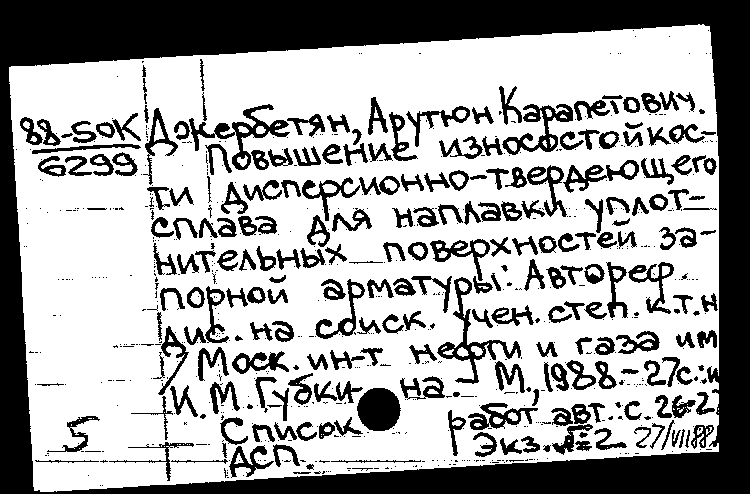 88-50К
6299
Джербетян, Арутюн Карапетович.
Повышение износостойкос-
ти дисперсионно-твердеющего
сплава для наплавки уплот-
нительных поверхностей за-
порной арматуры: Автореф.
дис. на соиск. учен. степ. к.т.н
/ Моск. ин-т нефти и газа им
И. М. Губки- на. - М., 1988. - 27с.: и
Список работ авт.: с. 26-27
ДСП. Экз. № 2 27/VII88.
5